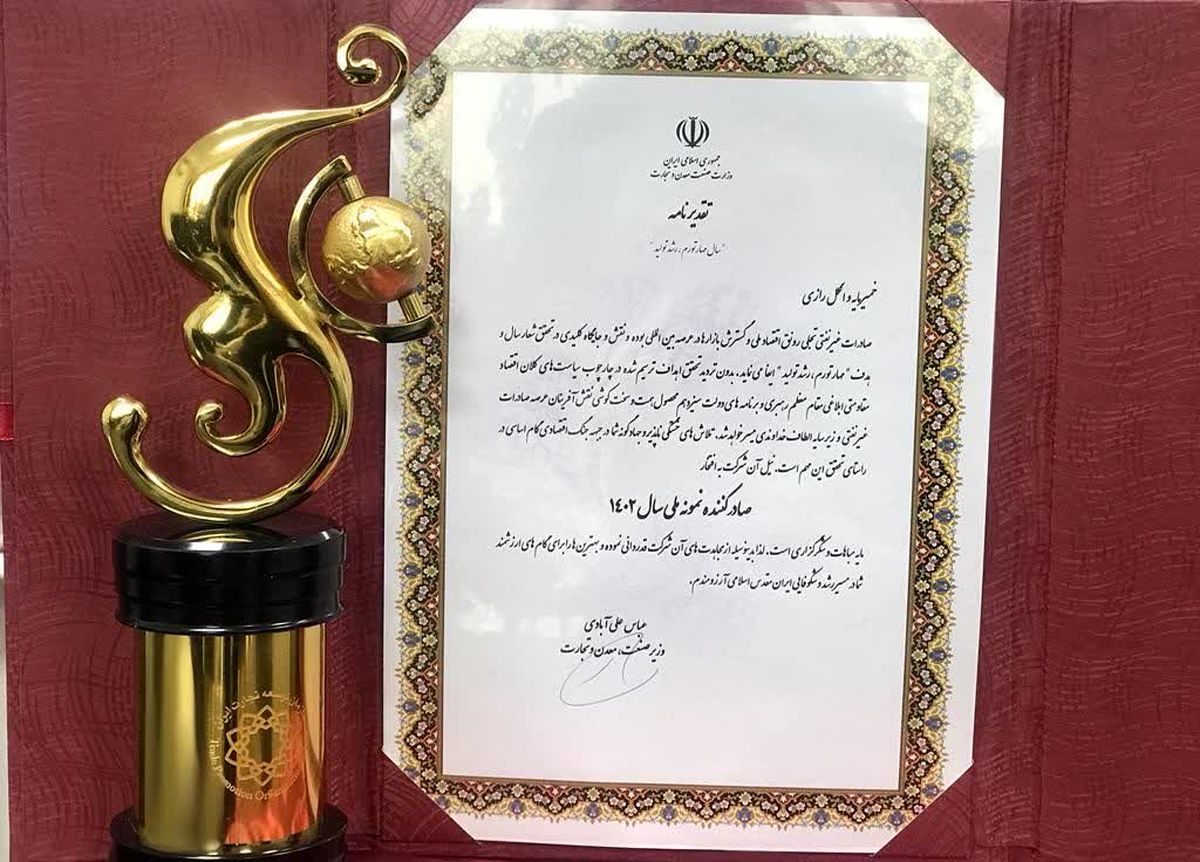 جمهوری اسلامی ایران
وزارت صنعت معدن و تجارت
تقدیرنامه
"سال مهار تورم، رشد تولید"
خمیرمایه و الکل رازی
صادرات غیرنفتی تجلی رونق اقتصاد ملی و گسترش بازارها در عرصه بین المللی بوده و نقش و جایگاه کلیدی در تحقق شعار سال و
هدف "مهار تورم، رشد تولید" ایفا می نماید. بدون تردید تحقق اهداف ترسیم شده در چارچوب سیاست‌های کلان اقتصاد
مقاومتی ابلاغی مقام معظم رهبری و برنامه های دولت سیزدهم محصول همت و سخت کوشی نقش آفرینان عرصه صادرات
غیرنفتی و زیر سایه الطاف خداوندی میسر خواهد شد، تلاش های خستگی ناپذیر و جهادگونه شما در جبهه جنگ اقتصادی گام اساسی در
راستای تحقق این مهم است. نیل آن شرکت به افتخار
صادرکننده نمونه ملی سال ۱۴۰۲
مایه مباهات و شکرگزاری است. لذا بدینوسیله از مجاهدت های آن شرکت قدردانی نموده و بهترین ها را برای گام های ارزشمند
شما در مسیر رشد و شکوفایی ایران مقدس اسلامی آرزومندم.
عباس علی آبادی
وزیر صنعت، معدن و تجارت
توسعه تجارت ایران
Trade Promotion